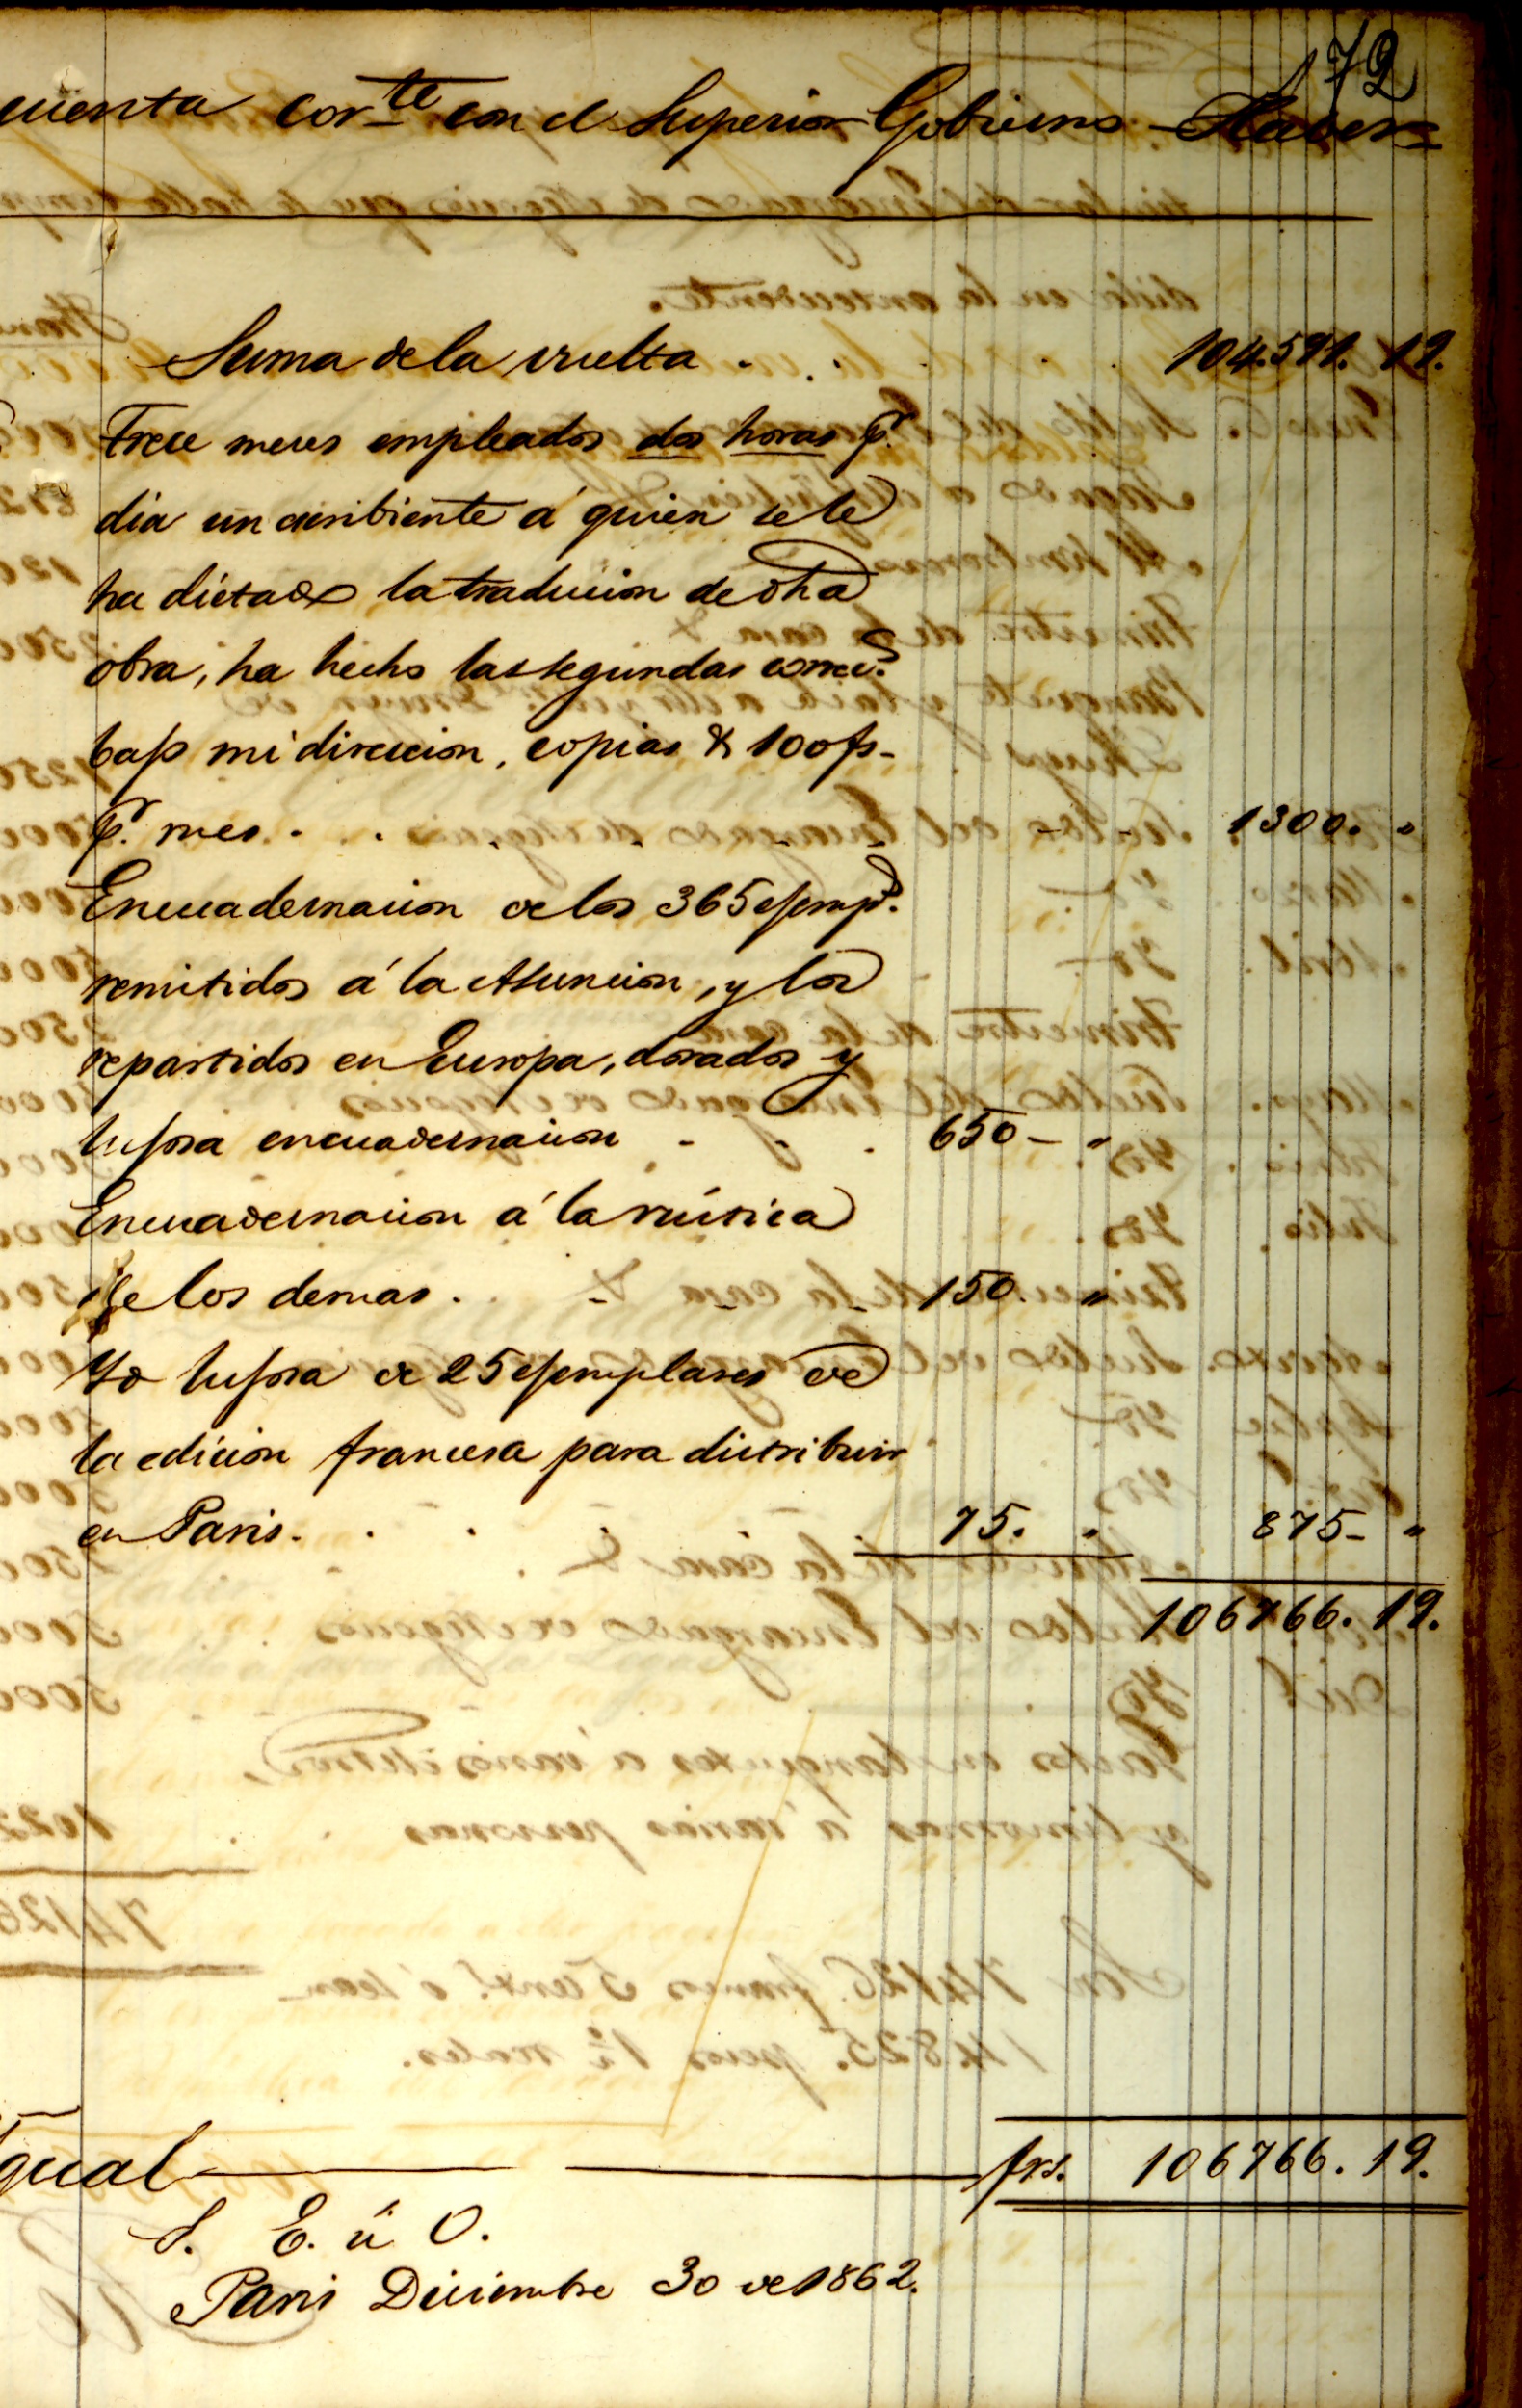 172
cuenta cor.te con el Superior Gobierno - Haber=
Suma de la vuelta . . . . 104.591. 19.
Trece meses empleados dos horas p.r
dia un escribiente á quien se le
ha dictado la traducion de dha
obra, ha hecho las segundas correc.s
bajo mi direccion, copias & 100 fs-
p.r mes . . 1300. "
Encuadernacion de los 365 ejemp.s
remitidos á la Asuncion, y los
repartidos en Europa, dorados y
lujosa encuadernacion - . . 650 - "
Encuadernacion á la rústica
de los demas . 150. "
Yd lujosa de 25 ejemplares de
la edicion francesa para distribuir
en Paris . . . . 75. " 875 - "
106766. 19.
gual frs. 106766. 19.
S. E. ú O.
Paris Diciembre 30 de 1862.